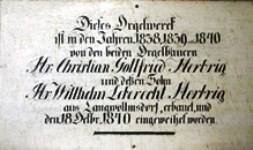 Dieses Orgelwerck
ist in den Jahren 1838, 1839 und 1840
von den beiden Orgelbauern
Hr. Christian Gottfried Herbrig
und deßen Sohn
Hr. Wilhelm Leberecht Herbrig
aus Langwollmsdorf, erbauet, und
den 18. Octbr. 1840 eingeweihet worden.